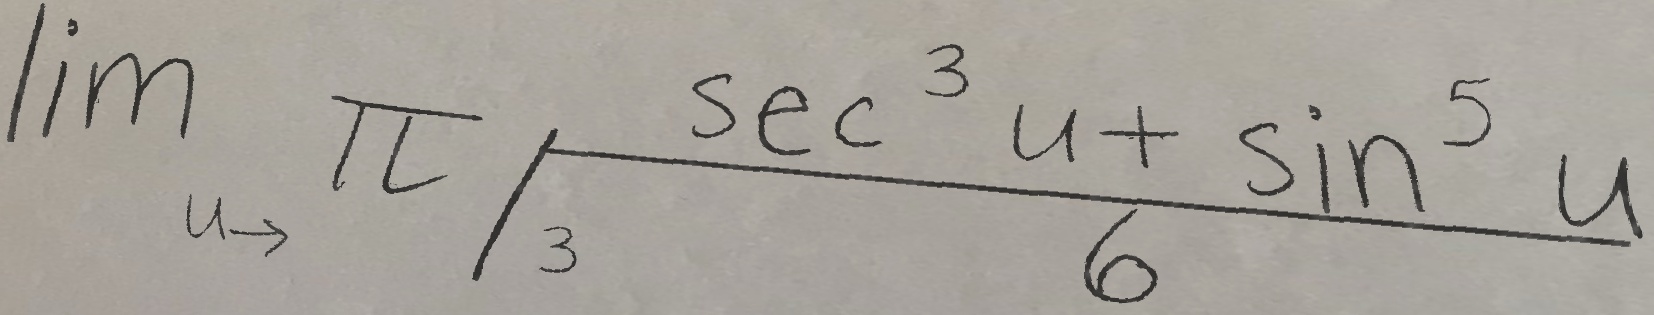 lim u→ π/3 sec³ u + sin⁵ u
6